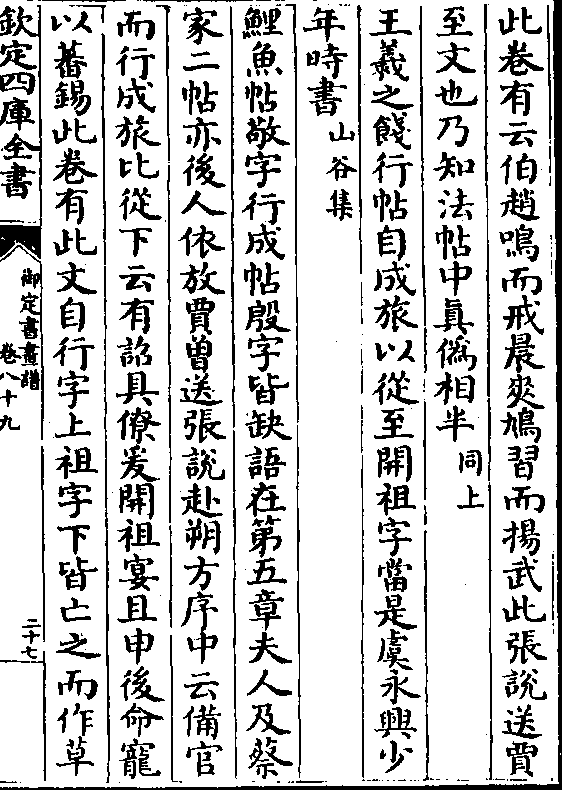 此卷有云伯趙鳴而戒晨爽鳩習而揚武此張說送賈
至文也乃知法帖中真偽相半同上
王羲之餞行帖自成旅以從至開祖字當是虞永興少
年時書山谷集
鯉魚帖敬字行成帖殷字皆缺語在第五章夫人及蔡
家二帖亦後人依放賈曽送張說赴朔方序中云備官
而行成旅比從下云有詔具僚爰開祖宴且申後命寵
以蕃錫此卷有此文自行字上祖字下皆亡之而作草
欽定四庫全書
御定書畫譜
卷八十九
二十七